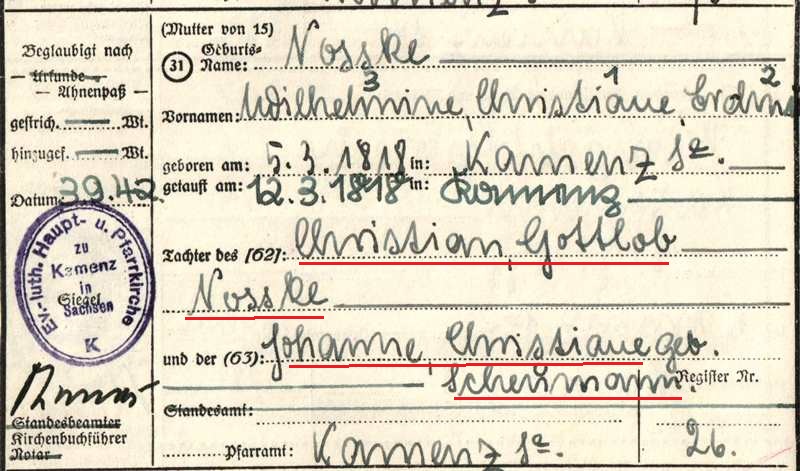 (Mutter von 15)
Beglaubigt nach
Urkunde
— Ahnenpaß —
gestrich. — Wt.
hinzugef. — Wt.
Datum: 3.9.42
Ev.-luth. Haupt- u. Pfarrkirche
zu
Kamenz
in
Siegel
Sachsen
K
Standesbeamter
Kirchenbuchführer
Notar
31 Geburts-
Name: Nosske
3 1 2
Vornamen: Wilhelmine, Christiane, Erdm
geboren am: 5.3.1818 in: Kamenz Sa.
getauft am: 12.3.1818 in: Kamenz
Tochter des [62]: Christian, Gottlob
Nosske
und der (63): Johanne, Christiane geb.
Scheumann.
Register Nr.
Standesamt:
Pfarramt: Kamenz Sa. 26.